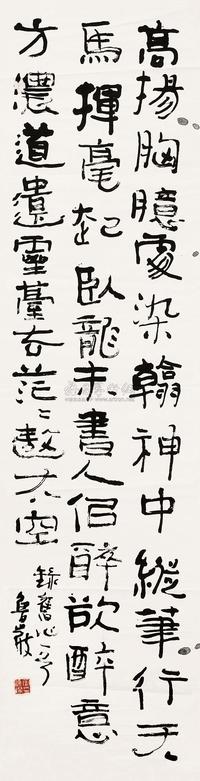 高揚胸臆處染翰神中縱筆行天
馬揮毫起臥龍未書人佀醉欲醉意
方濃道遺靈臺去茫〻遨太空
錄舊
魯